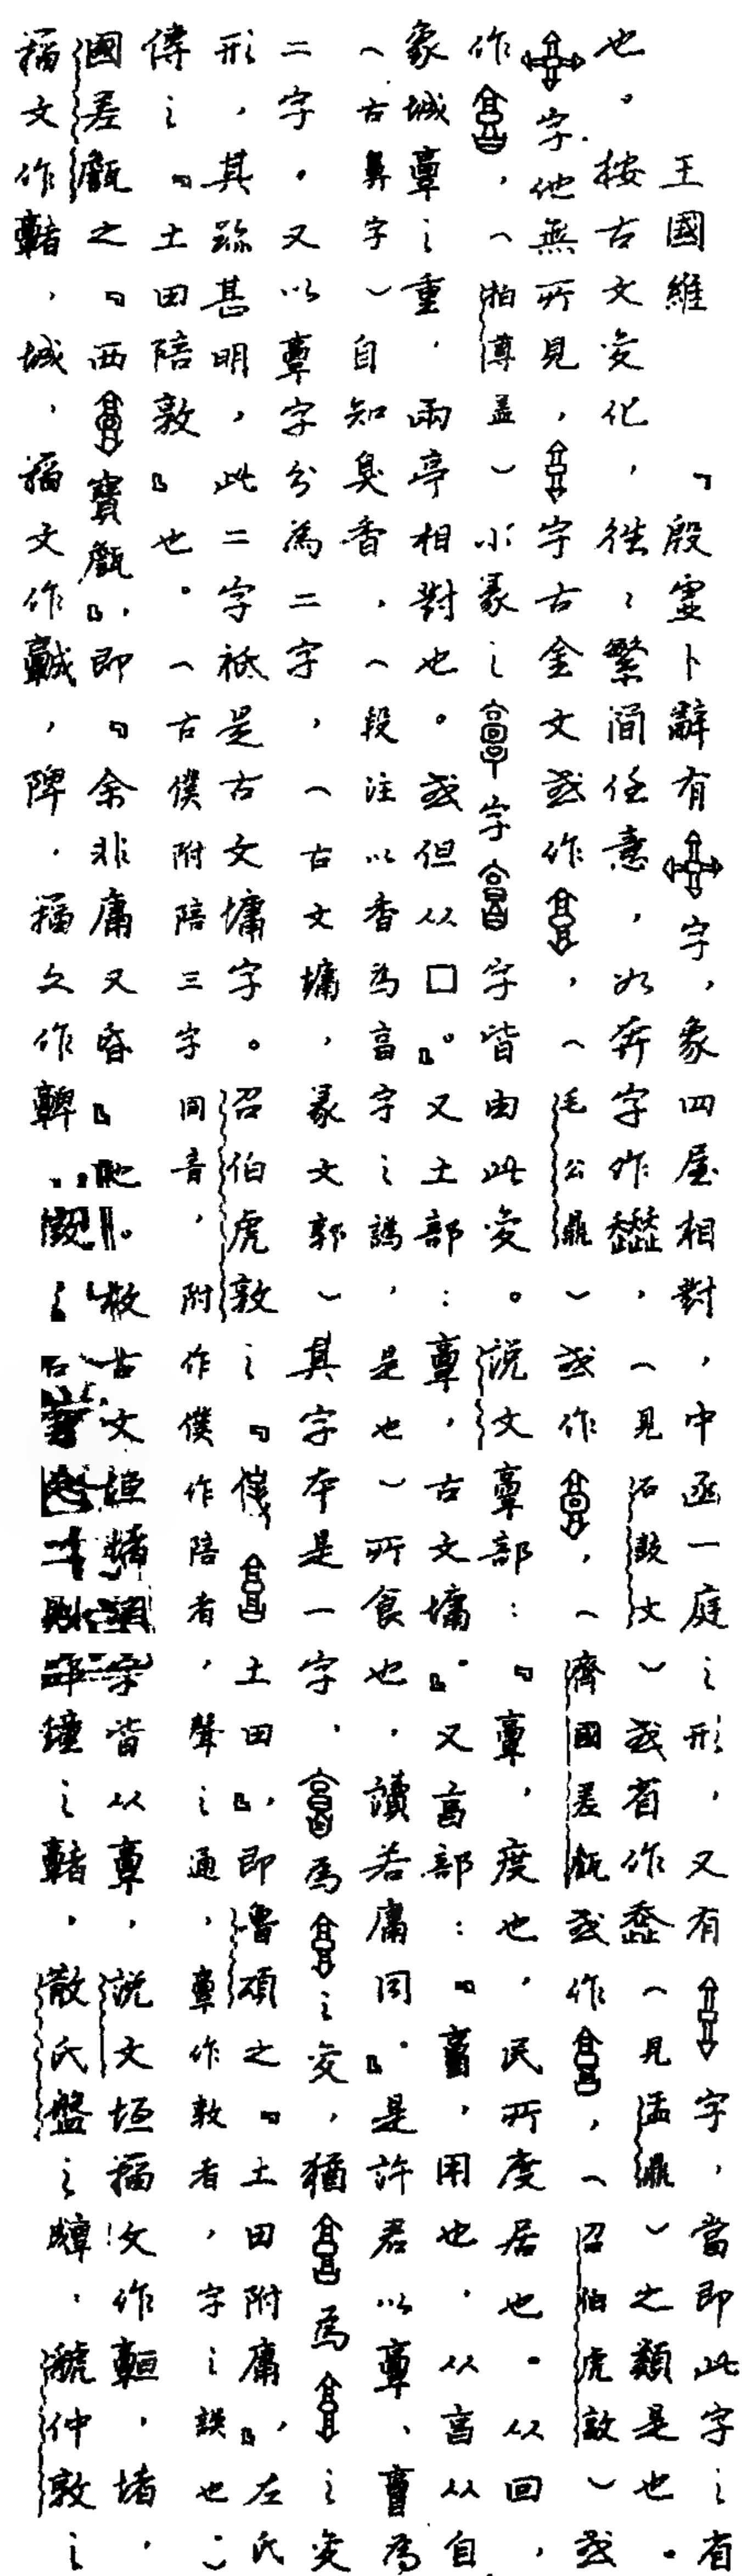 王國維 『殷虛卜辭有字，象四屋相對，中函一庭之形，又有字，當即此字之省
也。按古文变化，往〻繁简任意，如奔字作，（見石鼓文）或省作（見盂鼎）之類是也。
字他無所見，字古金文或作，（毛公鼎）或作，（齊國差𦉜或作，（召伯虎敦）或
作，（拍尊盖）小篆之字字皆由此变。說文𩫖部：『𩫖，度也，民所度居也。从回，
象城𩫖之重，兩亭相對也。或但从囗』。又土部：𩫖，古文墉』。又亯部：『𠅫，用也，从亯从自
（古鼻字）自知臭香，（段注以香為亯字之譌，是也）所食也，讀若庸同』。是許君以𩫖、𠅫為
二字。又以𩫖字分為二字，（古文墉，篆文郭）其字本是一字，為之变，猶為之变
形，其跡甚明，此二字祗是古文墉字。召伯虎敦之『僕土田』，即魯頌之『土田附庸』，左氏
傳之『土田陪敦』也。（古僕附陪三字同音，附作僕作陪者，聲之通，𩫖作敦者，字之誤也。）
國差𦉜之『西寶𦉜』，即『余非庸又昏』也。故古文垣堵字皆从𩫖，說文垣籀文作𩫢，堵，
籀文作𩫭，城，籀文作𩫨，陴，籀文作𩫫鐘之𩫭，散氏盤之，虢仲敦之